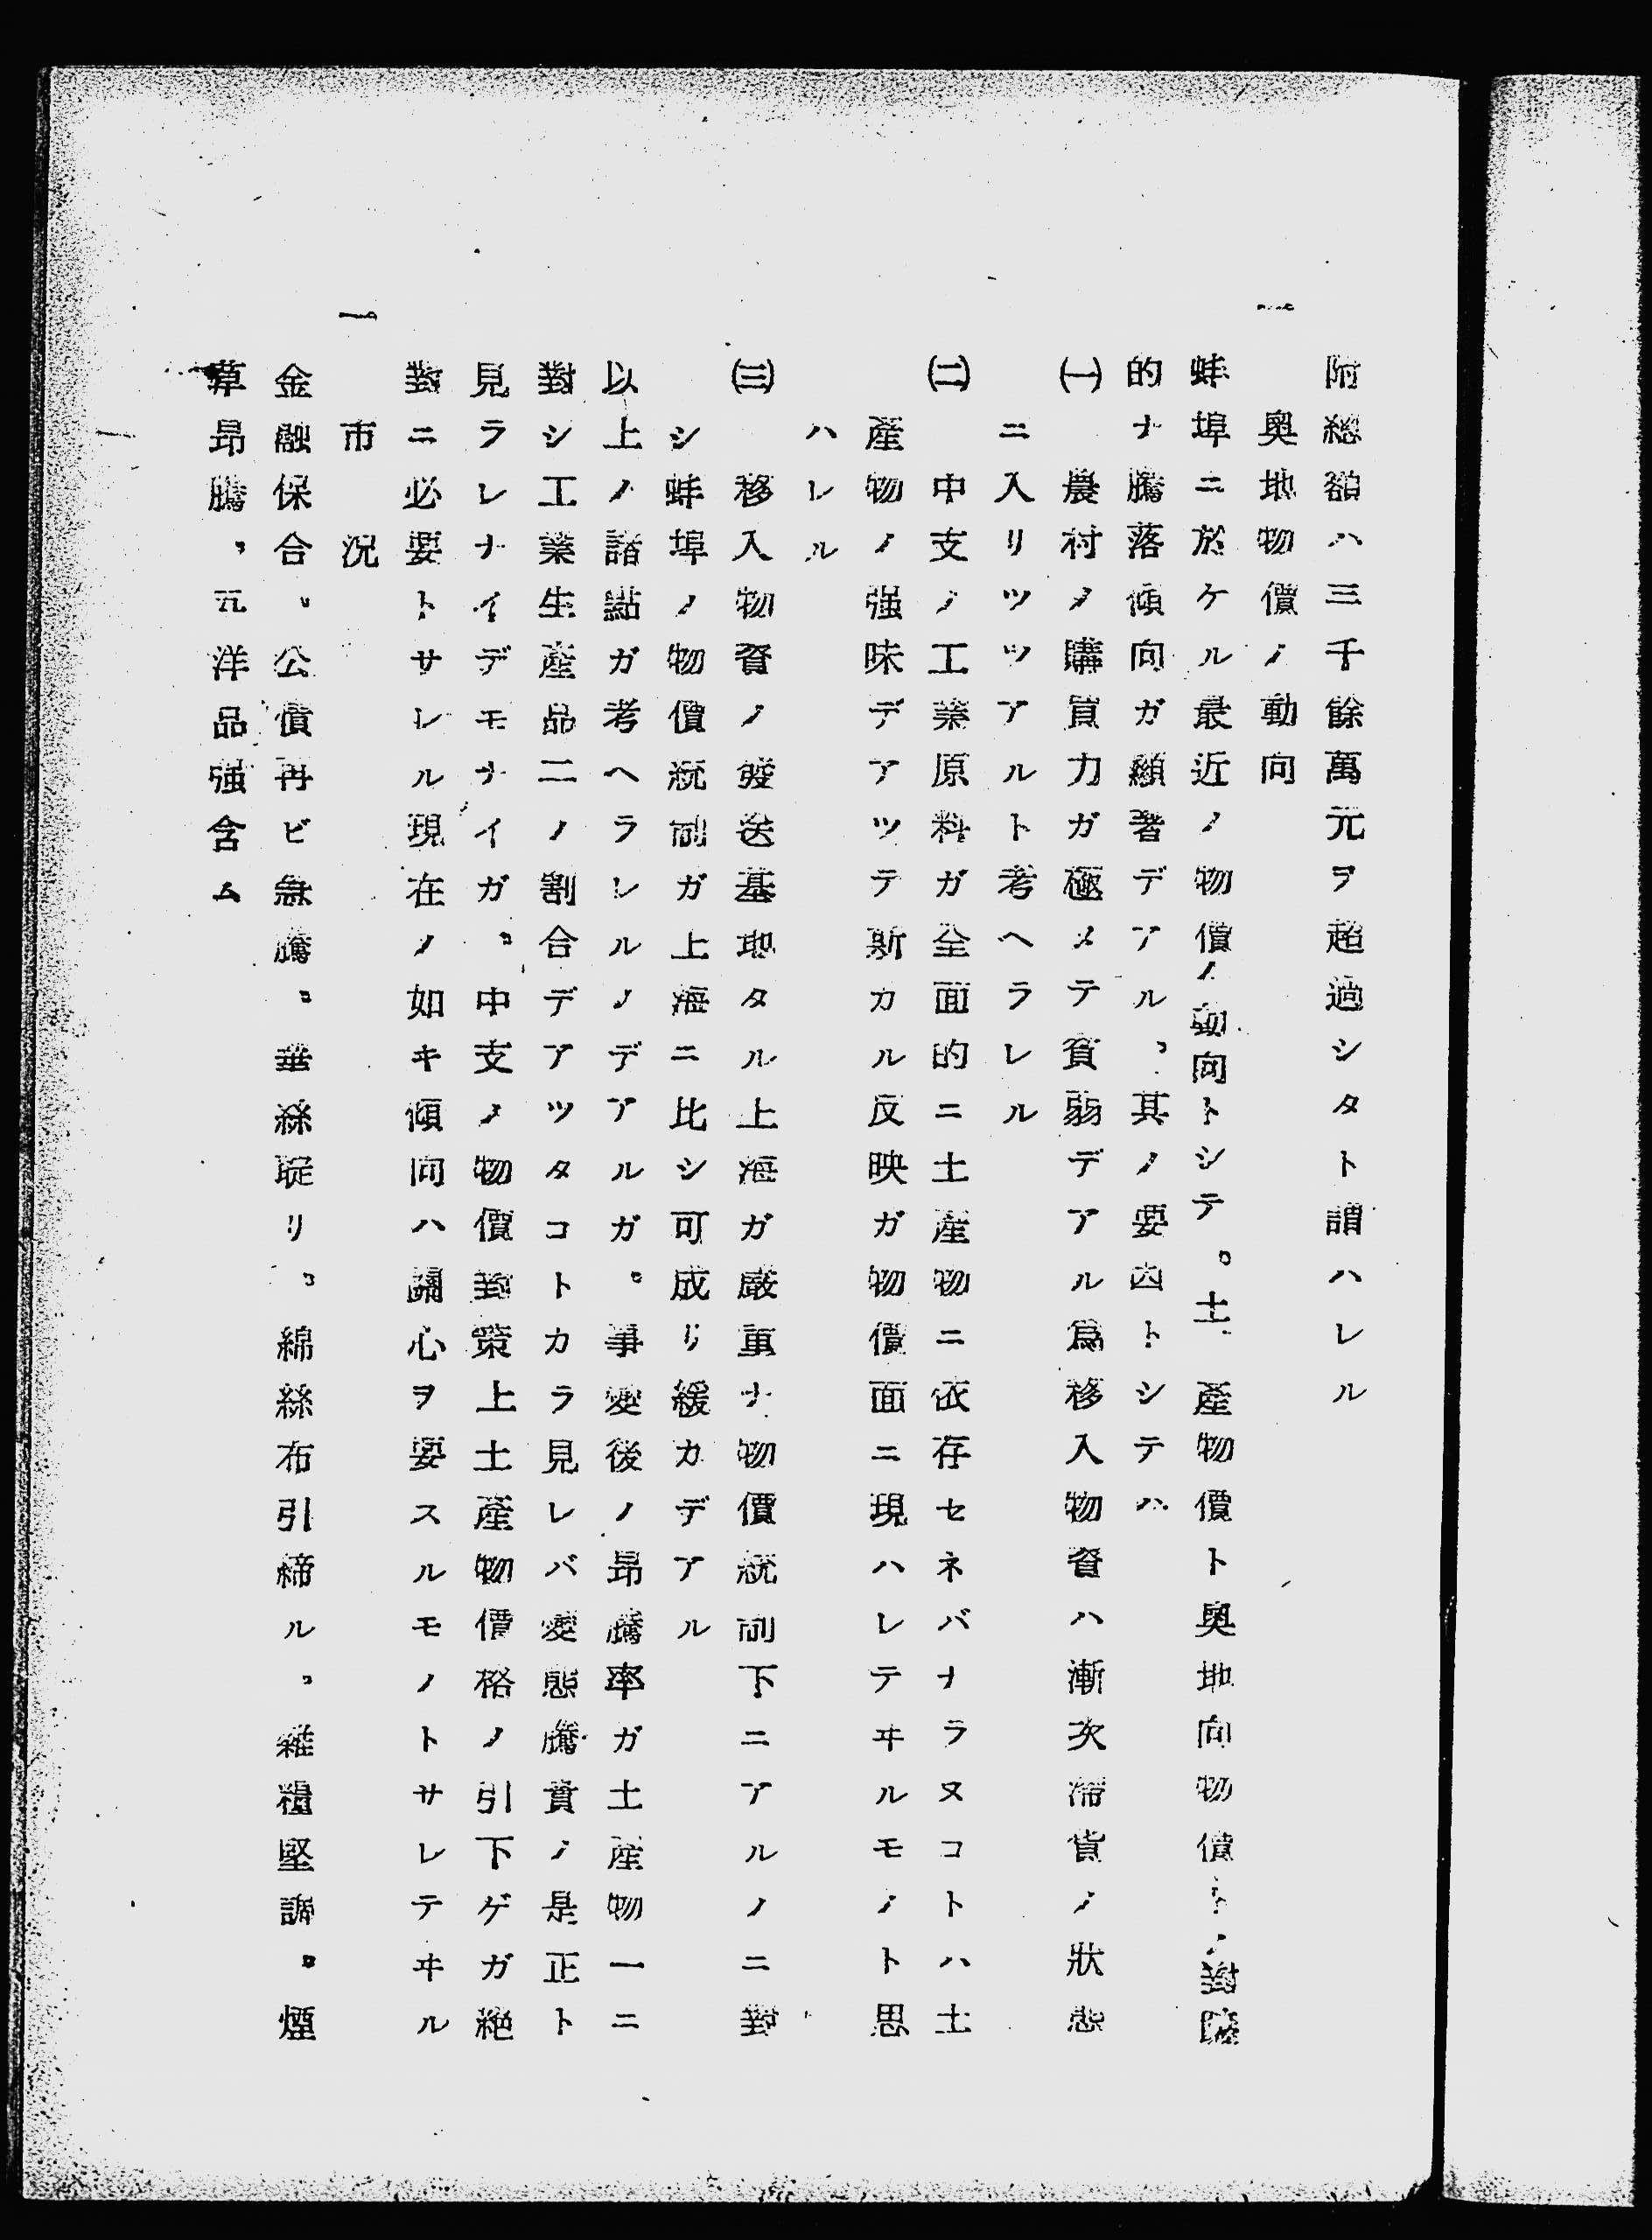 附總額ハ三千餘萬元ヲ超過シタト謂ハレル
一 奧地物價ノ動向
蚌埠ニ於ケル最近ノ物價ノ動向トシテ。土產物價ト奧地向物價トノ對蹠
的ナ騰落傾向ガ顯著デアル、其ノ要因トシテハ
㈠ 農村ノ購買力ガ極メテ貧弱デアル爲移入物資ハ漸次滯貨ノ狀態
ニ入リツツアルト考ヘラレル
㈡ 中支ノ工業原料ガ全面的ニ土產物ニ依存セネバナラヌコトハ土
產物ノ强味デアツテ斯カル反映ガ物價面ニ現ハレテヰルモノト思
ハレル
㈢ 移入物資ノ發送基地タル上海ガ嚴重ナ物價統制下ニアルノニ對
シ蚌埠ノ物價統制ガ上海ニ比シ可成リ緩カデアル
以上ノ諸點ガ考ヘラレルノデアルガ。事變後ノ昂騰率ガ土產物一ニ
對シ工業生產品二ノ割合デアツタコトカラ見レバ變態騰貴ノ是正ト
見ラレナイデモナイガ。中支ノ物價對策上土產物價格ノ引下ゲガ絕
對ニ必要トサレル現在ノ如キ傾向ハ關心ヲ要スルモノトサレテヰル
一 市況
金融保合。公債再ビ急騰。華絲碇リ。綿絲布引締ル、雜糧堅調。煙
草昂騰、五洋品强含ム